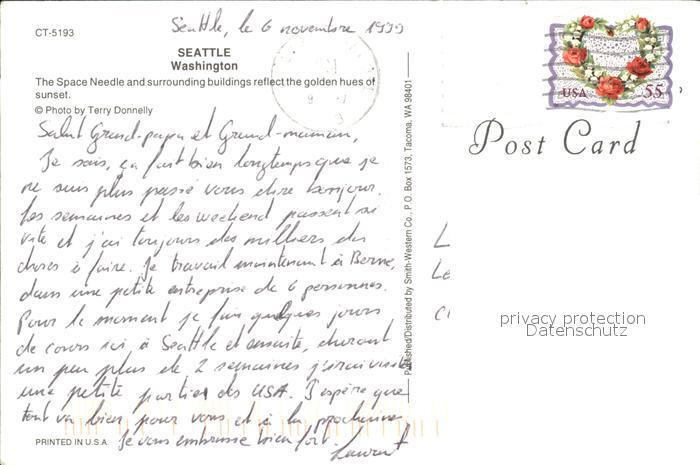 Seattle, le 6 novembre 1999
CT-5193
SEATTLE
Washington
The Space Needle and surrounding buildings reflect the golden hues of
sunset.
© Photo by Terry Donnelly
USA 55
Post Card
Published/Distributed by Smith-Western Co., P.O. Box 1573, Tacoma, WA 98401
Salut Grand-papa et Grand-maman,
Je sais, ça fait bien longtemps que je
ne suis plus passé vous dire bonjour.
Les semaines et les weekend passent si
vite et j'ai toujours des milliers des
choses à faire. Je travail maintenant à Berne,
dans une petite entreprise de 6 personnes.
Pour le moment je fais quelques jours
de cours ici à Seattle et ensuite, durant
un peu plus de 2 semaines j'irai visiter
une petite partie des USA. J'espère que
tout va bien pour vous et à la prochaine
Je vous embrasse bien fort.
Laurent
PRINTED IN U.S.A.
L
Le
privacy protection
Datenschutz